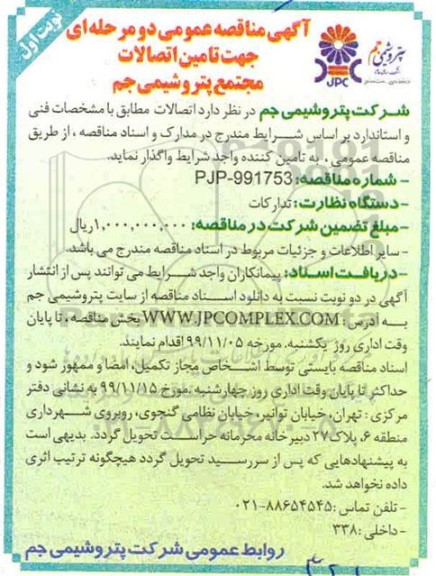 نوبت اول
آگهی مناقصه عمومی دو مرحله ای
جهت تامین اتصالات
مجتمع پتروشیمی جم
پتروشیمی جم
JPC
شرکت پتروشیمی جم در نظر دارد اتصالات مطابق با مشخصات فنی
و استاندارد بر اساس شرایط مندرج در مدارک و اسناد مناقصه ، از طریق
مناقصه عمومی ، به تامین کننده واجد شرایط واگذار نماید.
- شماره مناقصه: PJP-991753
- دستگاه نظارت: تدارکات
- مبلغ تضمین شرکت در مناقصه: ۱,۰۰۰,۰۰۰,۰۰۰ریال
- سایر اطلاعات و جزئیات مربوط در اسناد مناقصه مندرج می باشد.
- دریافت اسناد: پیمانکاران واجد شرایط می توانند پس از انتشار
آگهی در دو نوبت نسبت به دانلود اسناد مناقصه از سایت پتروشیمی جم
به آدرس : WWW.JPCOMPLEX.COM بخش مناقصه، تا پایان
وقت اداری روز یکشنبه. مورخه ۹۹/۱۱/۰۵ اقدام نمایند.
اسناد مناقصه بایستی توسط اشخاص مجاز تکمیل، امضا و ممهور شود و
حداکثر تا پایان وقت اداری روز چهارشنبه .مورخ ۹۹/۱۱/۱۵ به نشانی دفتر
مرکزی : تهران، خیابان توانیر، خیابان نظامی گنجوی، روبروی شهرداری
منطقه ۶، پلاک۲۷ دبیرخانه محرمانه حراست تحویل گردد. بدیهی است
به پیشنهادهایی که پس از سررسید تحویل گردد هیچگونه ترتیب اثری
داده نخواهد شد.
- تلفن تماس :۸۸۶۵۴۵۴۵-۰۲۱
- داخلی :۳۳۸
روابط عمومی شرکت پتروشیمی جم